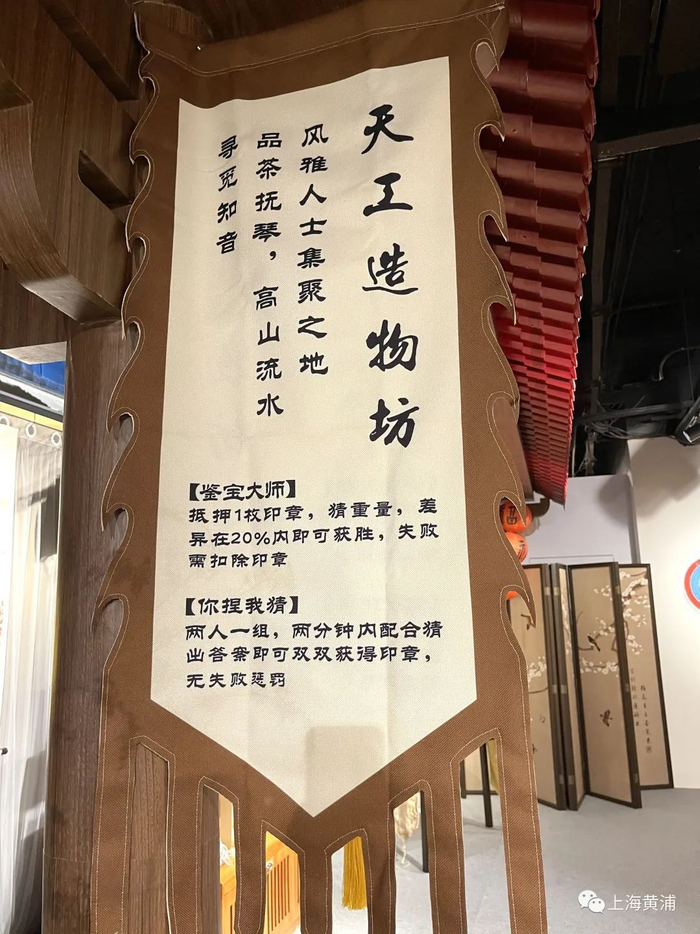 天工造物坊
风雅人士集聚之地
品茶抚琴，高山流水
寻觅知音
【鉴宝大师】
抵押1枚印章，猜重量，差
异在20%内即可获胜，失败
需扣除印章
【你捏我猜】
两人一组，两分钟内配合猜
出答案即可双双获得印章，
无失败惩罚
上海黄浦